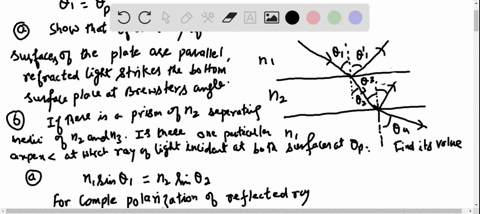 θ1 = θp
(a) Show that
surfaces of the plate are parallel,
refracted light strikes the bottom
surface plate at Brewsters angle.
(b) If there is a prism of n2 seperating
media of n2 and n3. Is there one particular
at which ray of light incident at both surfaces at θp.
Find its value
n1
n2
n1
θ1 θ'1
θ2 θ3
θ4
(a) n1 sin θ1 = n2 sin θ2
For Comple polarization of reflected ray